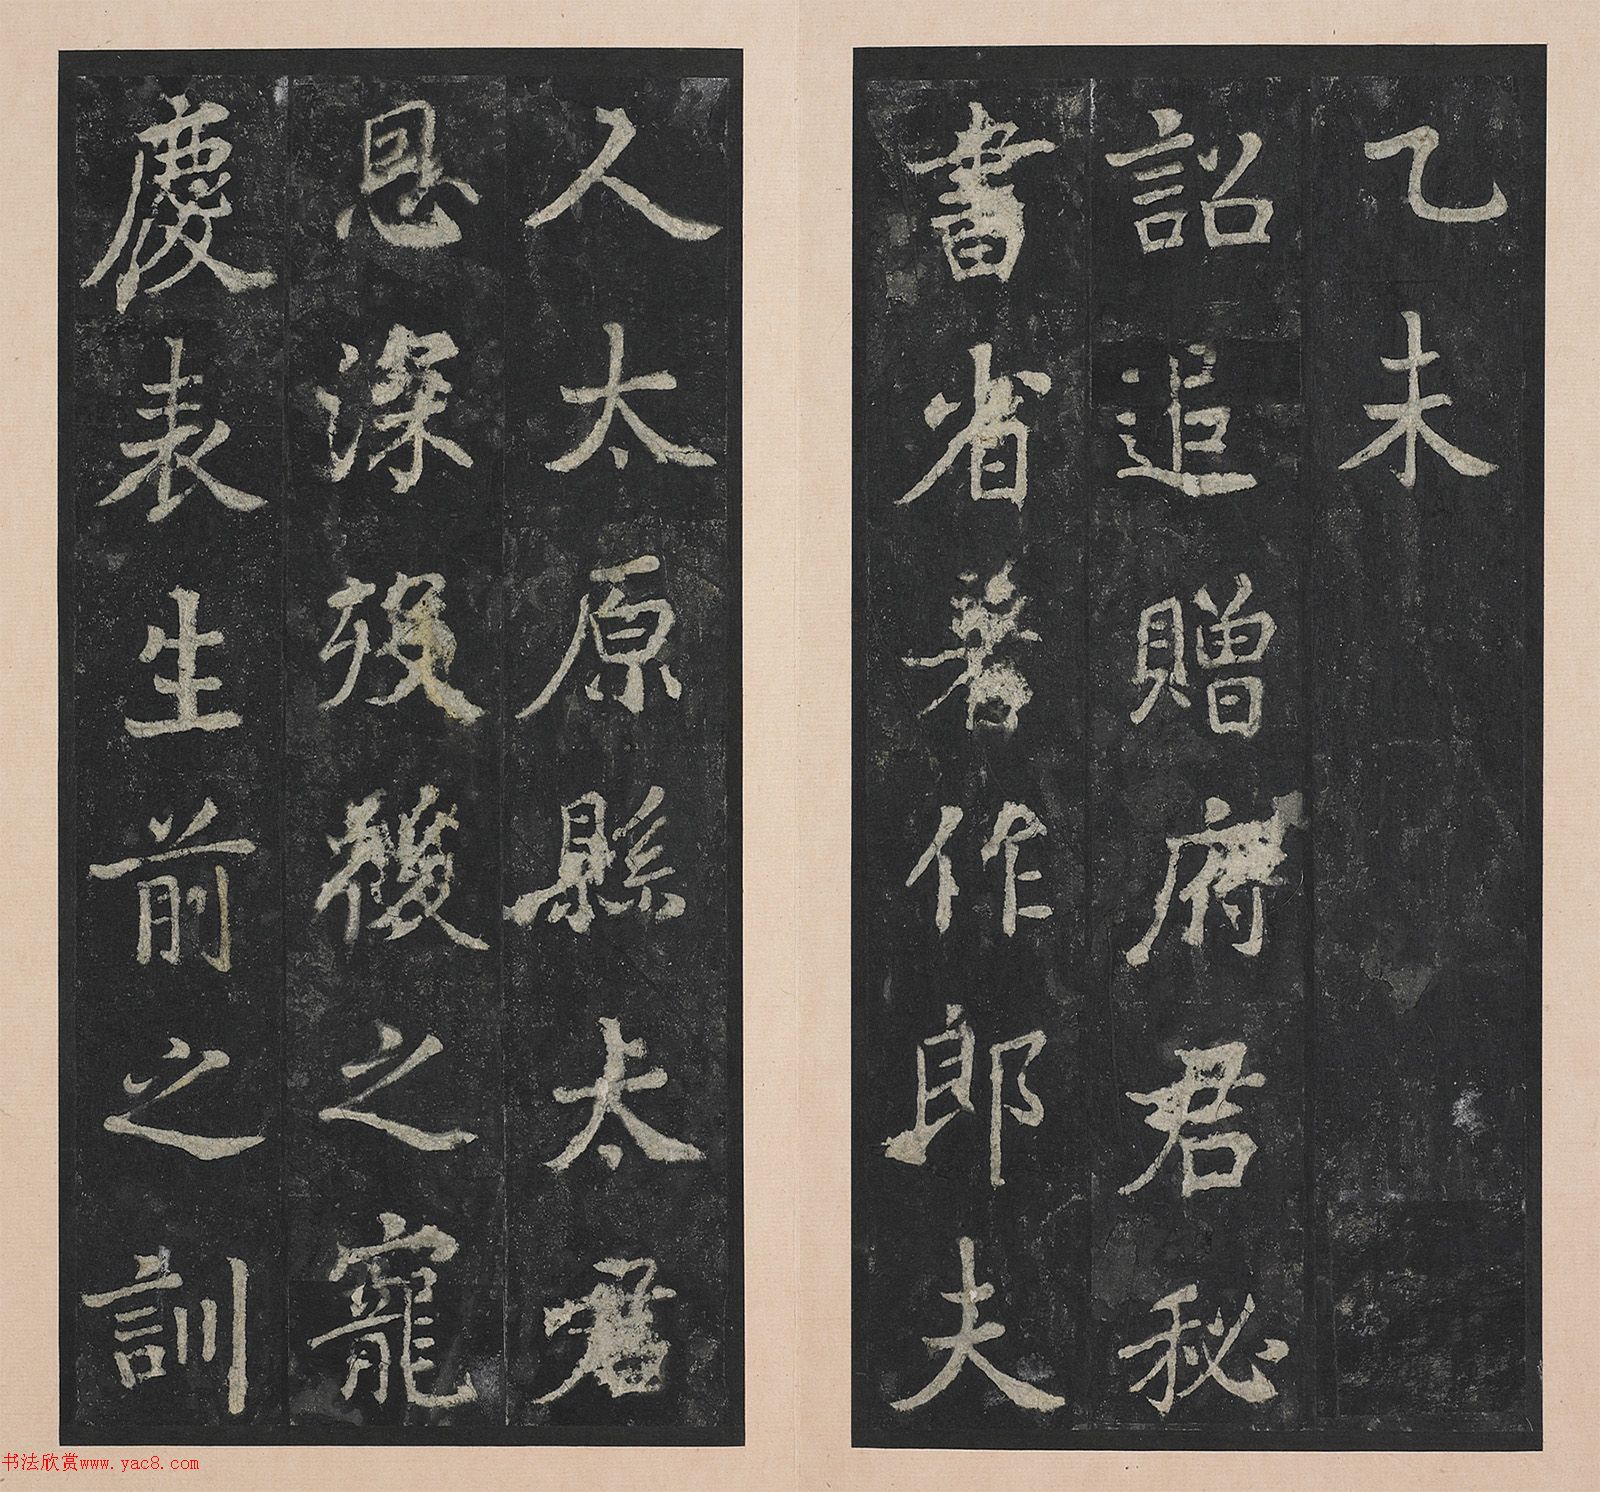 乙未
詔追贈府君秘
書省著作郎夫
人太原縣太君
恩深歿後之寵
慶表生前之訓
书法欣赏www.yac8.com